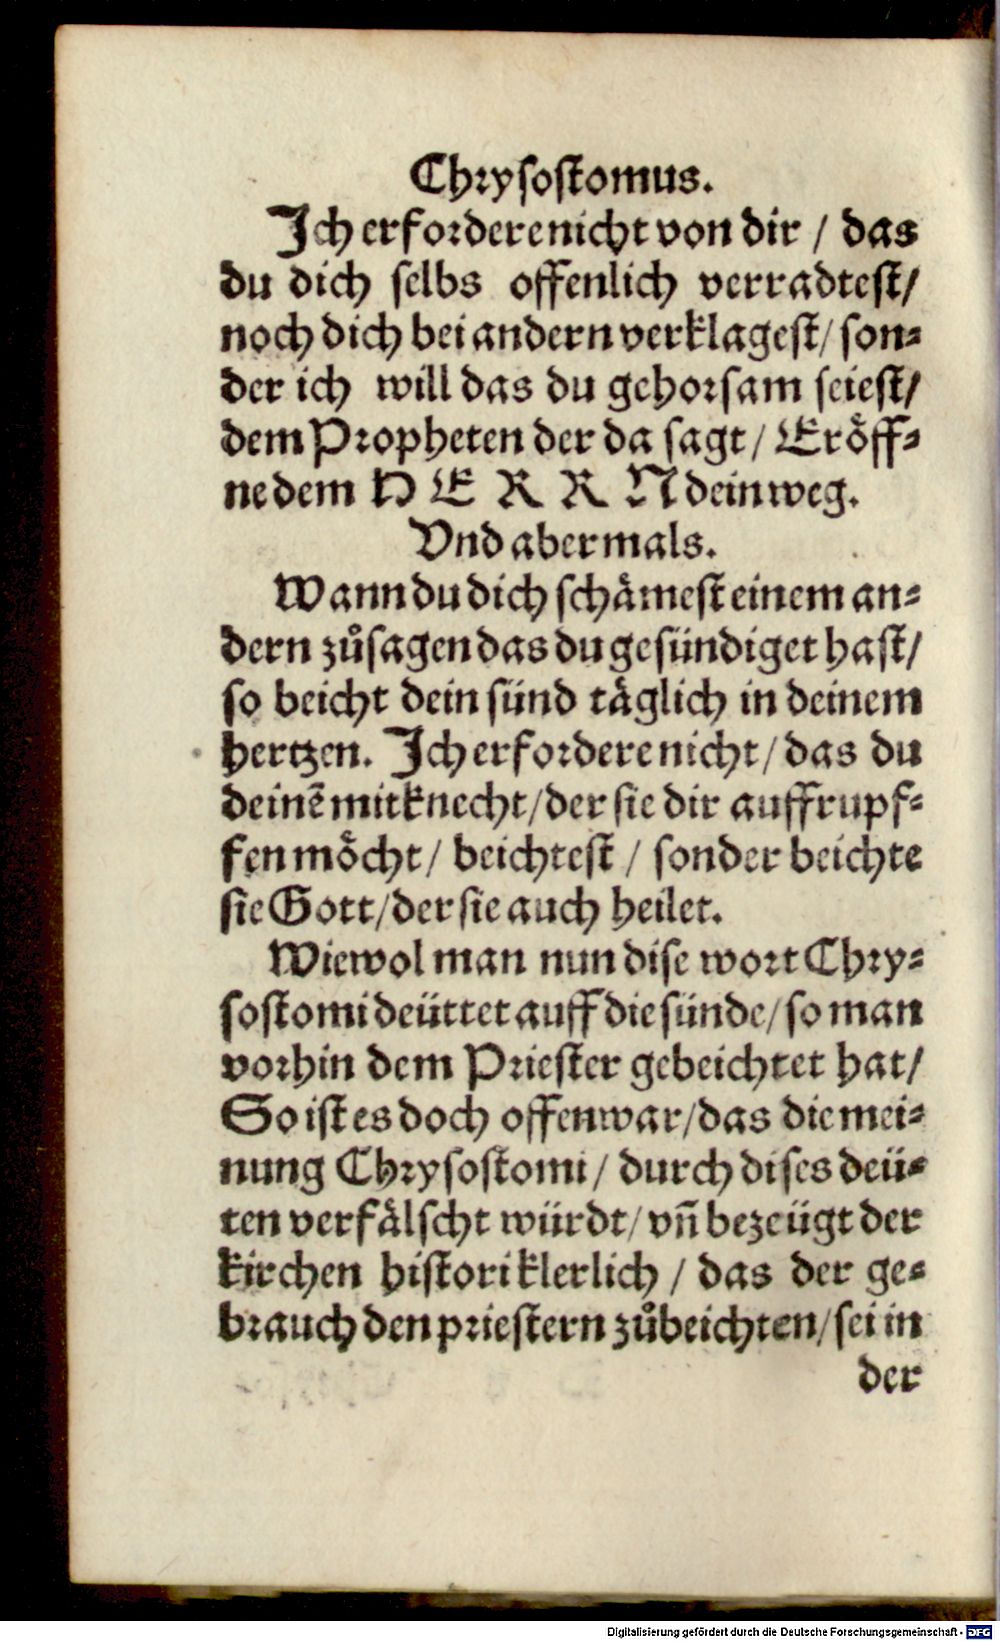 Chrysostomus.
Ich erfordere nicht von dir / das
du dich selbs offenlich verradtest/
noch dich bei andern verklagest/ son⸗
der ich will das du gehorsam seiest/
dem Propheten der da sagt/ Eröff⸗
ne dem HERRN dein weg.
Vnd abermals.
Wann du dich schämest einem an⸗
dern zůsagen das du gesündiget hast/
so beicht dein sünd täglich in deinem
hertzen. Ich erfordere nicht/ das du
deinē mitknecht/der sie dir auffrupf⸗
fen möcht/ beichtest / sonder beichte
sie Gott/der sie auch heilet.
Wiewol man nun dise wort Chry⸗
sostomi deüttet auff die sünde/so man
vorhin dem Priester gebeichtet hat/
So ist es doch offenwar/das die mei⸗
nung Chrysostomi / durch dises deü⸗
ten verfälscht würdt/ vn̄ bezeügt der
kirchen historiklerlich / das der ge⸗
brauch den priestern zůbeichten/sei in
der
Digitalisierung gefördert durch die Deutsche Forschungsgemeinschaft - DFG